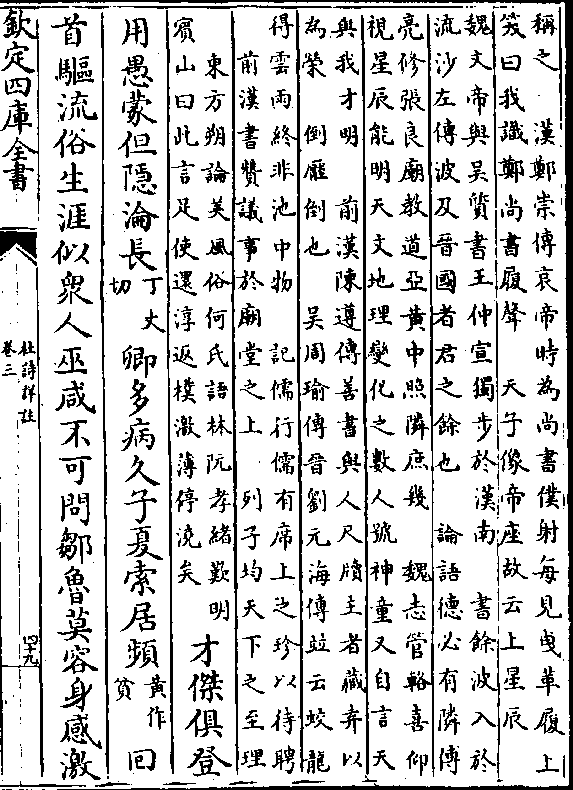 稱之　漢鄭崇傳哀帝時為尚書僕射每見曳革履上
笑曰我識鄭尚書履聲　天子像帝座故云上星辰
魏文帝與吴質書王仲宣獨步於漢南　書餘波入於
流沙左傳波及晉國者君之餘也　論語德必有隣傅
亮修張良廟教道亞黄中照隣庶幾　魏志管輅喜仰
視星辰能明天文地理變化之數人號神童又自言天
與我才明　前漢陳遵傳善書與人尺牘主者藏弆以
為榮　倒屣倒也　吴周瑜傳晉劉元海傳竝云蛟龍
得雲雨終非池中物　記儒行儒有席上之珍以待聘
前漢書贊議事於廟堂之上　列子均天下之至理
東方朔論美風俗何氏語林阮孝緒歎明
賓山曰此言足使還淳返樸激薄停澆矣
才傑俱登
用愚蒙但隱淪長
丁丈
切
卿多病久子夏索居頻
黄作
貧
回
首驅流俗生涯似衆人巫咸不可問鄒魯莫容身感激
欽定四庫全書
杜詩詳註
卷三
四十九